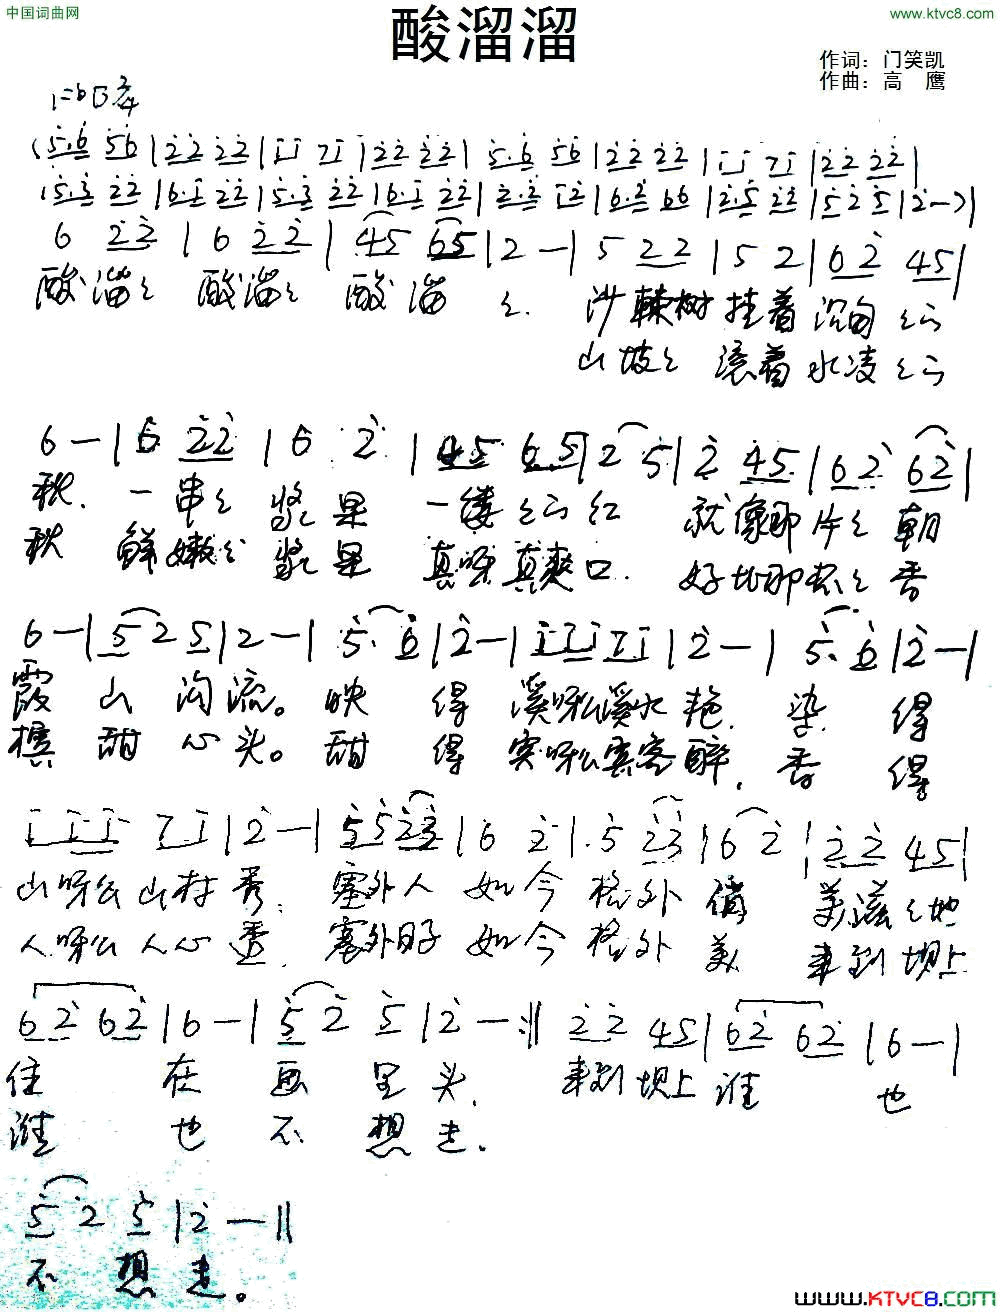 中国词曲网
www.ktvc8.com
酸溜溜
作词：门笑凯
作曲：高 鹰
1=bB 2/4
(5.6 56|22 22|11 71|22 22| 5.6 56|22 22|11 71|22 22|
5.3 22|6.1 22|5.3 22|6.1 22|2.2 12|6.2 66|2.5 22|5 2 5|2—)|
6 22|6 22|45 65|2 —|5 22|5 2|62 45|
酸溜々 酸溜々 酸溜 々. 沙棘树 挂着 沉甸 々的
山坡々 滚着 水凌 々的
6—|6 22|6 2|45 65|2 5|2 45|62 62|
秋. 一串々 浆果 一缕々的红 就像那片々朝
秋 鲜嫩々 浆果 真呀真爽口. 好比那杯々香
6—|5 2 5|2—|5. 6|2—|111 71|2—|5. 6|2—|
霞 山沟流。映 得 溪呀么溪水艳. 染 得
槟 甜心头。甜 得 宾呀么宾客醉, 香 得
111 71|2—|5523|6 2|5 23|6 2|22 45|
山呀么山村秀. 塞外人 如今 格外 俏 美滋々地
人呀么人心透. 塞外日子 如今 格外 美 来到坝上
62 62|6—|5 2 5|2—:‖ 22 45|62 62|6—|
住 在 画里头. 来到坝上谁 也
谁 也 不想走.
5 2 5|2—‖
不 想 走。
www.KTVC8.com